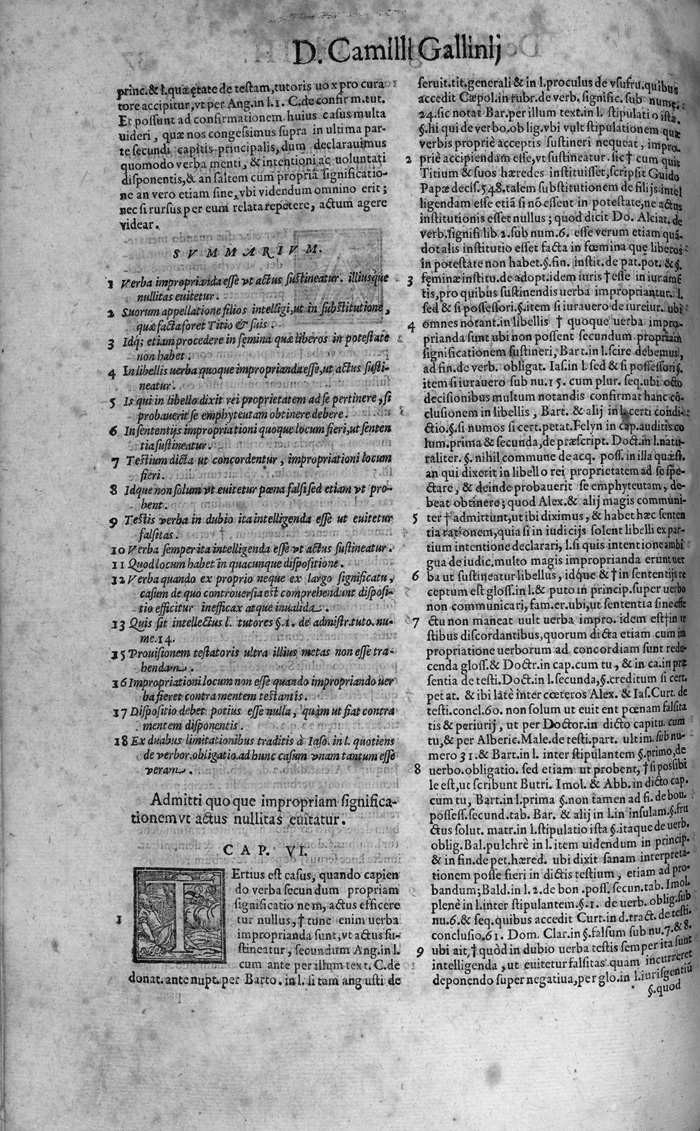 D. Camilli Gallinij
princ. & l. quæ ętate de testam, tutoris uo x pro cura
tore accipitur, vt per Ang. in l. 1. C. de confirm. tut.
Et possunt ad confirmationem huius casus multa
uideri, quæ nos congessimus supra in ultima par-
te secundi capitis principalis, dum declarauimus
quomodo verba menti, & intentioni ac uoluntati
disponentis, & an saltem cum propria significatio-
ne an vero etiam sine, vbi videndum omnino erit;
nec si rursus per eum relata repetere, actum agere
videar.
SVMMARIVM.
1 Verba improprianda esse vt actus sustineatur. illiusque
nullitas euitetur.
2 Suorum appellatione filios intelligi, ut in substitutione,
quæ facta foret Titio & suis.
3 Idq; etiam procedere in femina quæ liberos in potestate
non habet.
4 In libellis uerba quoque improprianda esse, ut actus susti-
neatur.
5 Is qui in libello dixit rei proprietatem ad se pertinere, si
probauerit se emphyteutam obtinere debere.
6 In sententijs impropriationi quoque locum fieri, ut senten
tia sustineatur.
7 Testium dicta ut concordentur, impropriationi locum
fieri.
8 Idque non solum vt euitetur pœna falsi sed etiam vt pro-
bent.
9 Testis verba in dubio ita intelligenda esse ut euitetur
falsitas.
10 Verba semper ita intelligenda esse vt actus sustineatur.
11 Quod locum habet in quacunque dispositione.
12 Verba quando ex proprio neque ex largo significatu,
casum de quo controuersia est comprehendunt disposi-
tio efficitur inefficax atque inualida.
13 Quis sit intellectus l. tutores §. 1. de admistr. tuto. nu-
me. 14.
15 Prouisionem testatoris ultra illius metas non esse tra-
hendam.
16 Impropriationi locum non esse quando impropriando uer
ba fieret contra mentem testantis.
17 Dispositio debet potius esse nulla, quàm ut fiat contra
mentem disponentis.
18 Ex duabus limitationibus traditis à Iaso. in l. quotiens
de verbor. obligatio. ad hunc casum vnam tantum esse
veram.
Admitti quo que impropriam significa-
tionem vt actus nullitas euitatur.
CAP. VI.
Tertius est casus, quando capien
do verba secundum propriam
significationem, actus efficere
1 tur nullus, † tunc enim uerba
improprianda sunt, vt actus su-
stineatur, secundum Ang. in l.
cum ante per illum text. C. de
donat. ante nupt. per Barto. in l. si tam angusti de
seruit. tit. generali & in l. proculus de vsufru. quibus
accedit Cæpol. in rubr. de verb. signific. sub nume.
24. sic notat Bar. per illum text. in l. stipulatio ista.
§. hi qui de verbo. oblig. vbi vult stipulationem quæ
verbis propriè acceptis sustineri nequeat, impro
2 priè accipiendam esse, vt sustineatur. sic † cum quis
Titium & suos hæredes instituisset, scripsit Guido
Papæ decis. 548. talem substitutionem de filijs intel
ligendam esse etiã si nõ essent in potestate, ne actus
institutionis esset nullus; quod dicit Do. Alciat. de
verb. signifi lib 2. sub num. 6. esse verum etiam quã-
do talis institutio esset facta in fœmina que liberos
in potestate non habet. §. fin. instit. de pat. pot. & §.
3 feminæ institu. de adopt. idem iuris † esse in iuramẽ
tis, pro quibus sustinendis uerba impropriantur. l.
sed & si possessori. §. item si iurauero de iureiur. ubi
4 omnes notant. in libellis † quoque uerba impro-
prianda sunt ubi non possent secundum propriam
significationem sustineri, Bart. in l. scire debemus,
ad fin. de verb. obligat. Ias. in l. sed & si possessori §.
item si iurauero sub nu. 15. cum plur. seq. ubi octo
decisionibus multum notandis confirmat hanc cõ
clusionem in libellis, Bart. & alij in l. certi condi-
ctio. §. si numos si cert. petat. Felyn in cap. auditis co
lum. prima & secunda, de præscript. Doct. in l. natu-
raliter. §. nihil commune de acq. poss. in illa quæst.
an qui dixerit in libello rei proprietatem ad se spe-
ctare, & deinde probauerit se emphyteutam, de-
beat obtinere; quod Alex. & alij magis communi-
5 ter † admittunt, ut ibi diximus, & habet hæc senten
tia rationem, quia si in iudicijs solent libelli ex par-
tium intentione declarari, l. si quis intentione ambi
gua de iudic, multo magis improprianda erunt uer
6 ba ut sustineatur libellus, idque & † in sententijs re
ceptum est gloss. in l. & puto in princip. super uerbo
non communicari, fam. er. ubi, ut sententia sine effe
7 ctu non maneat uult uerba impro. idem est † in te
stibus discordantibus, quorum dicta etiam cum im
propriatione uerborum ad concordiam sunt redu-
cenda gloss. & Doct. in cap. cum tu, & in ca. in præ
sentia de testi. Doct. in l. secunda, §. creditum si cert.
pet at. & ibi latè inter cœteros Alex. & Ias. Curt. de
testi. concl. 60. non solum ut euitent pœnam falsita
tis & periurij, ut per Doctor. in dicto capitu. cum
tu, & per Alberic. Male. de testi. part. ultim. sub nu-
mero 31. & Bart. in l. inter stipulantem §. primo, de
8 uerbo. obligatio. sed etiam ut probent, † si possibi
le est, ut scribunt Butri. Imol. & Abb. in dicto cap.
cum tu, Bart. in l. prima §. non tamen ad fi. de bou.
possess. secund. tab. Bar. & alij in l. in insulam. §. fru
ctus solut. matr. in l. stipulatio ista §. itaque de uerb.
oblig. Bal. pulchrè in l. item uidendum in princip.
& in fin. de pet. hæred. ubi dixit sanam interpreta-
tionem posse fieri in dictis testium, etiam ad pro-
bandum; Bald. in l. 2. de bon. poss. secun. tab. Imol.
plenè in l. inter stipulantem. §. 1. de uerb. oblig. sub
nu. 6. & seq. quibus accedit Curt. in d. tract. de testi.
conclusio. 61. Dom. Clar. in §. falsum sub nu. 7. & 8.
9 ubi ait, † quòd in dubio uerba testis semper ita sunt
intelligenda, ut euitetur falsitas quam incurreret
deponendo super negatiua, per glo. in l. iurisgentiũ
§. quod